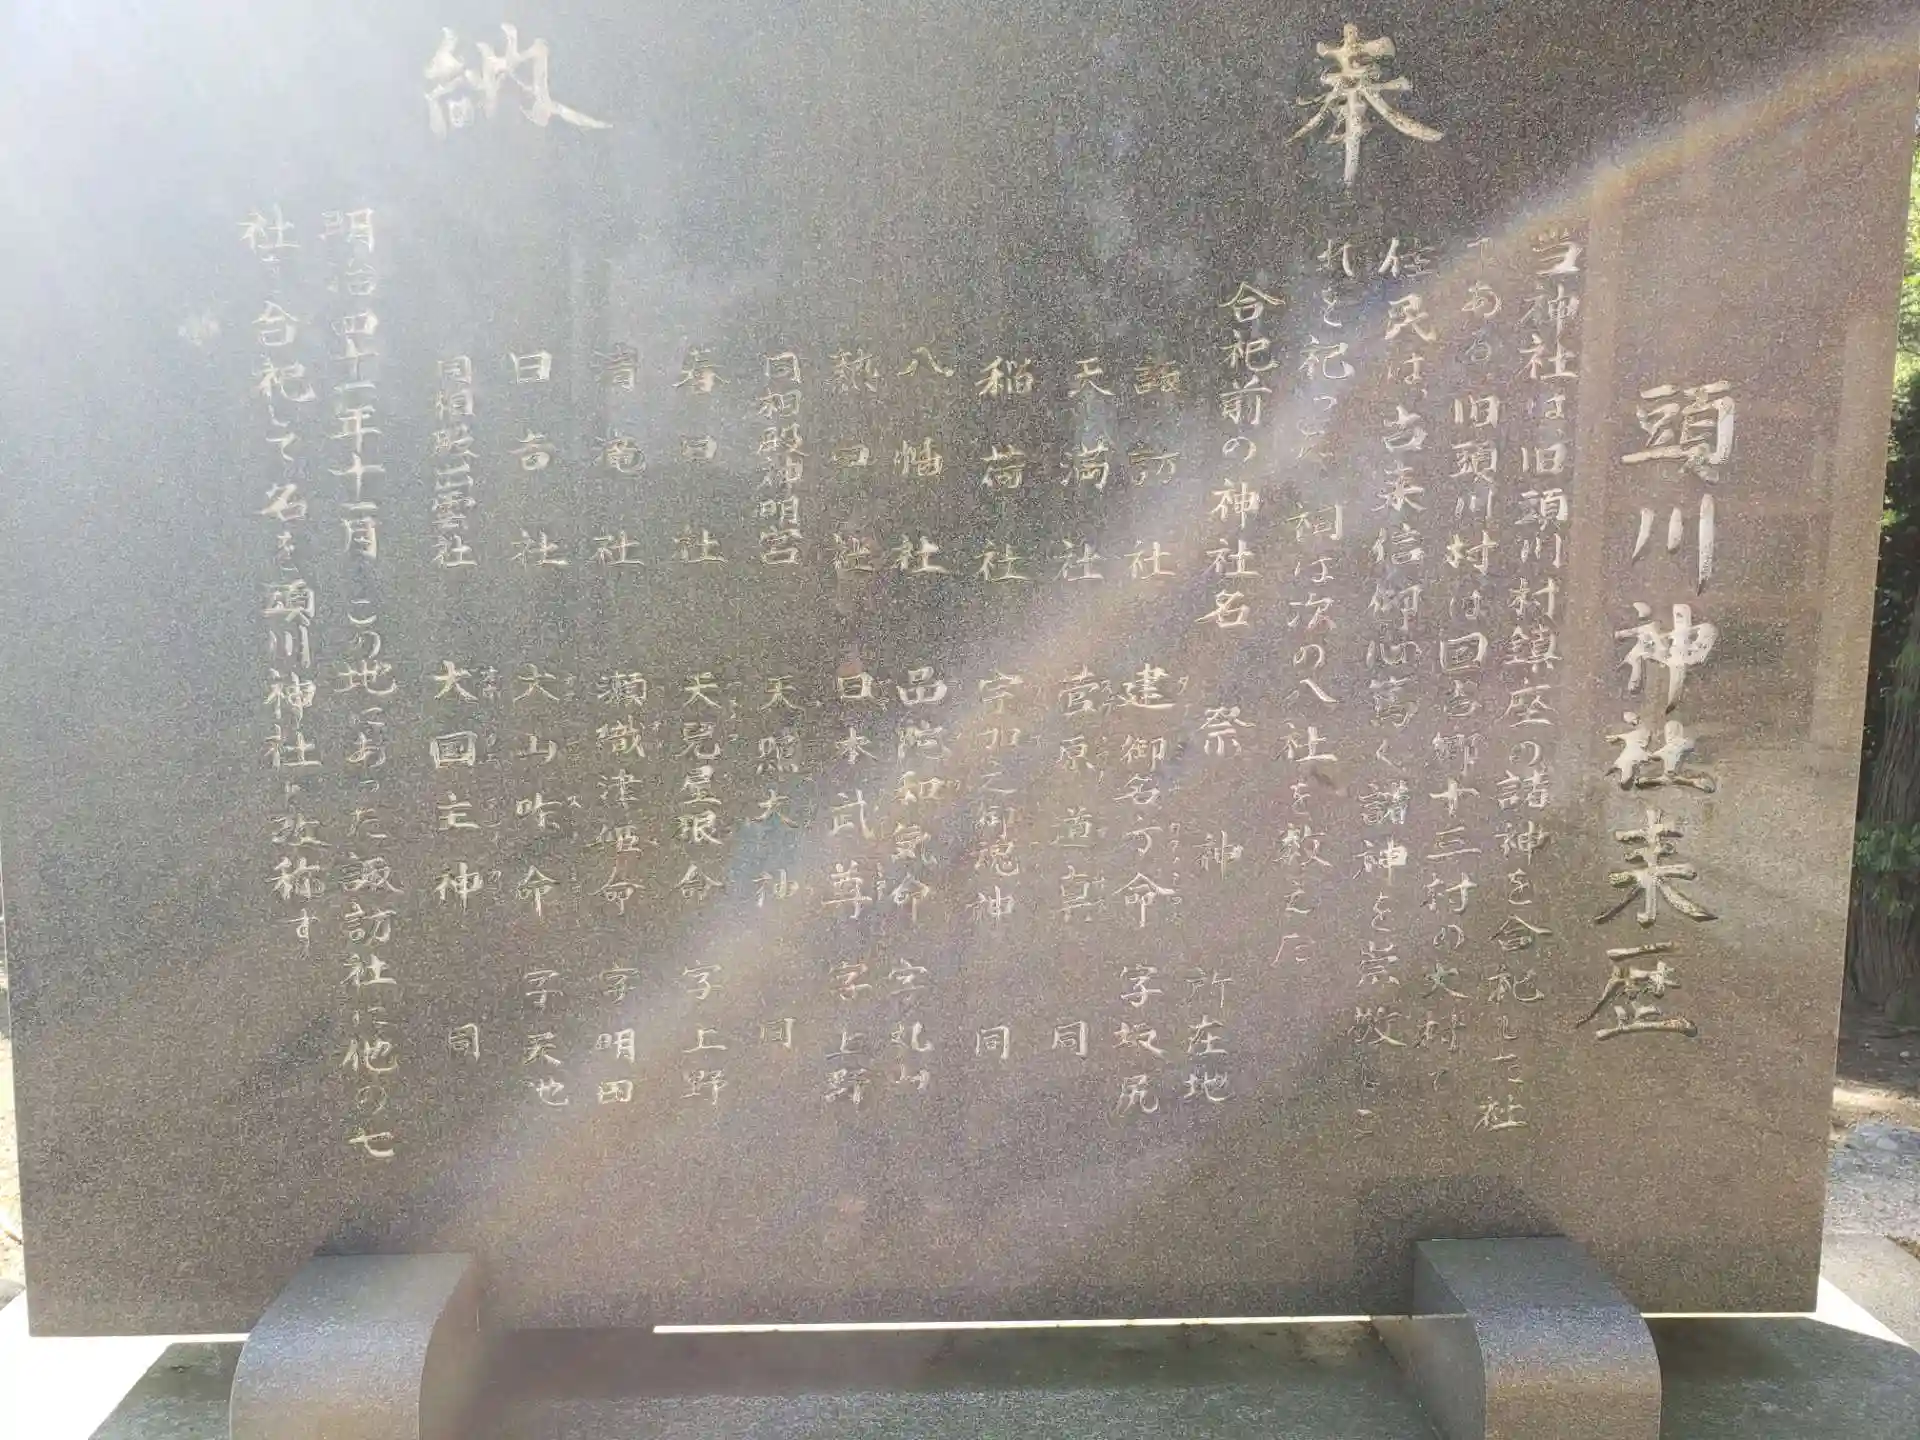 奉納
頭川神社来歴
当神社は旧頭川村鎮座の諸神を合祀した社
である 旧頭川村は国吉郷十三村の大村で
住民は、古来信仰心篤く諸神を崇敬しこ
れを祀った 祠は次の八社を数えた
合祀前の神社名 祭神 所在地
諏訪社 建御名方命 字坂尻
天満社 菅原道真 同
稲荷社 宇加之御魂神 同
八幡社 品陀和気命 字丸山
熱田社 日本武尊 字上野
同相殿神明宮 天照大神 同
春日社 天児屋根命 字上野
清滝社 瀬織津姫命 字明田
日吉社 大山咋命 字天池
同相殿出雲社 大国主神 同
明治四十一年十一月 この地にあった諏訪社に他の七
社を合祀して名を頭川神社と改称す